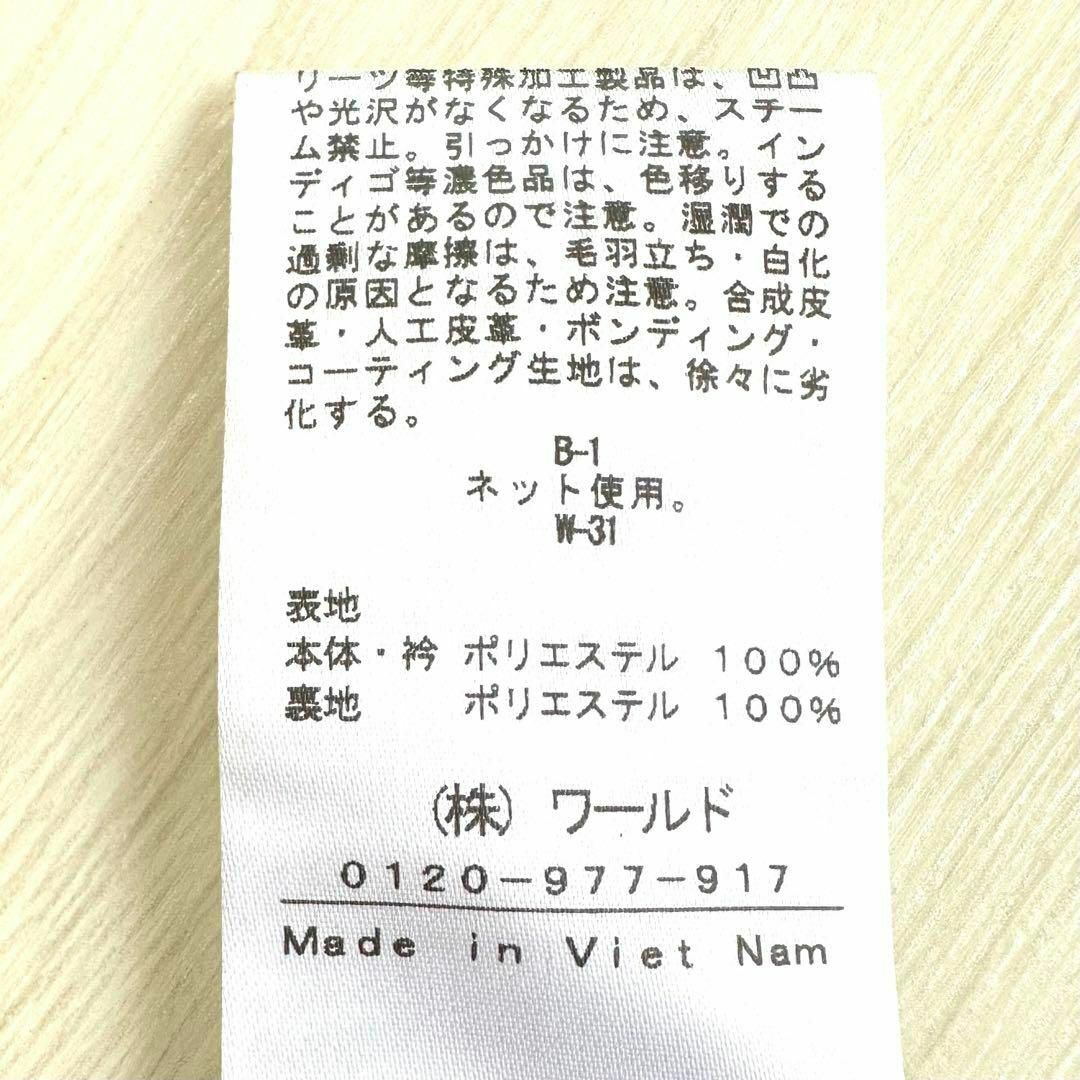 リーツ等特殊加工製品は、凹凸
や光沢がなくなるため、スチー
ム禁止。引っかけに注意。イン
ディゴ等濃色品は、色移りする
ことがあるので注意。湿潤での
過剰な摩擦は、毛羽立ち・白化
の原因となるため注意。合成皮
革・人工皮革・ボンディング・
コーティング生地は、徐々に劣
化する。
B-1
ネット使用。
W-31
表地
本体・衿 ポリエステル 100%
裏地 ポリエステル 100%
(株) ワールド
0120-977-917
Made in Viet Nam